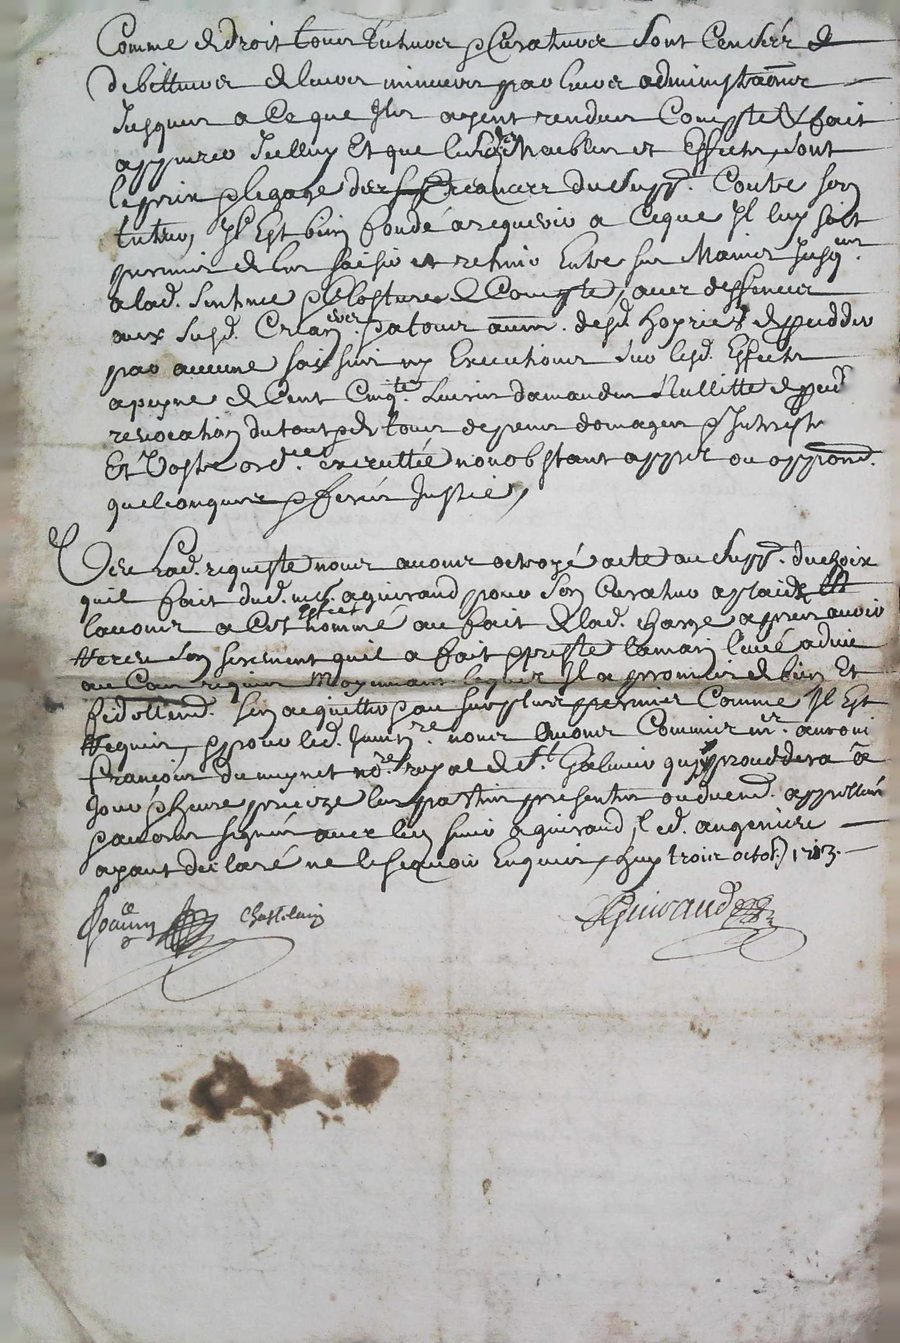 Comme de droit tous tuteurs & Curateurs sont Censés &
debitteurs de leurs mineurs par leurs administraõns
Jusques a Ce que Ils ayent rendus Compte & fait
appurer Icelluy Et que lesd. Meubles et Effects, sont
le prix & le gage des Creances du Supp.t Contre son
tuteur, Il Est bien fondé a requerir a Ceque Il luy soit
permis de les saisir et retenir Entre ses Mains Jusq.
a lad. Sentence & Closture de Compte, avec deffences
aux Susd. Creanciers & a tous autres desd. hoyries de proceder
par aucune saisie ny Executions sur lesd. Effects
a peyne de Cent Cinq.te Livres damande Nullitté de
revocation du tout & de tous depens domages & Interests
Et Vostre ord.ce executtée nonobstant appel ou oppõon.
quelconques & ferés Justice,
Veu Lad. requeste nous avons octroyé acte au Supp.t du choix
quil fait dud. m.e aguiraud pour son Curateur a plaids
lavons a Cet effect nommé au fait de lad. charge apres avoir
receu son serement quil a fait & presté la main levée a dieu
au Cas requis Moyennant lequel Il a promis de bien Et
fidellem.t sen acquitter & au surplus permis Comme Il Est
Requis, & pour led. Inventre. nous avons Commis m.e antoni
françois dumynet no.re royal de S.t Galmier quy proceddera a
Jour & heure precize les parties presentes ou duem.t appellées
& avons signés avec led. sieur aguiraud, led. angeniere
ayant declaré ne le sçavoir Enquis, Ce troix octob. 1713.
Chastelain
AGuiraud